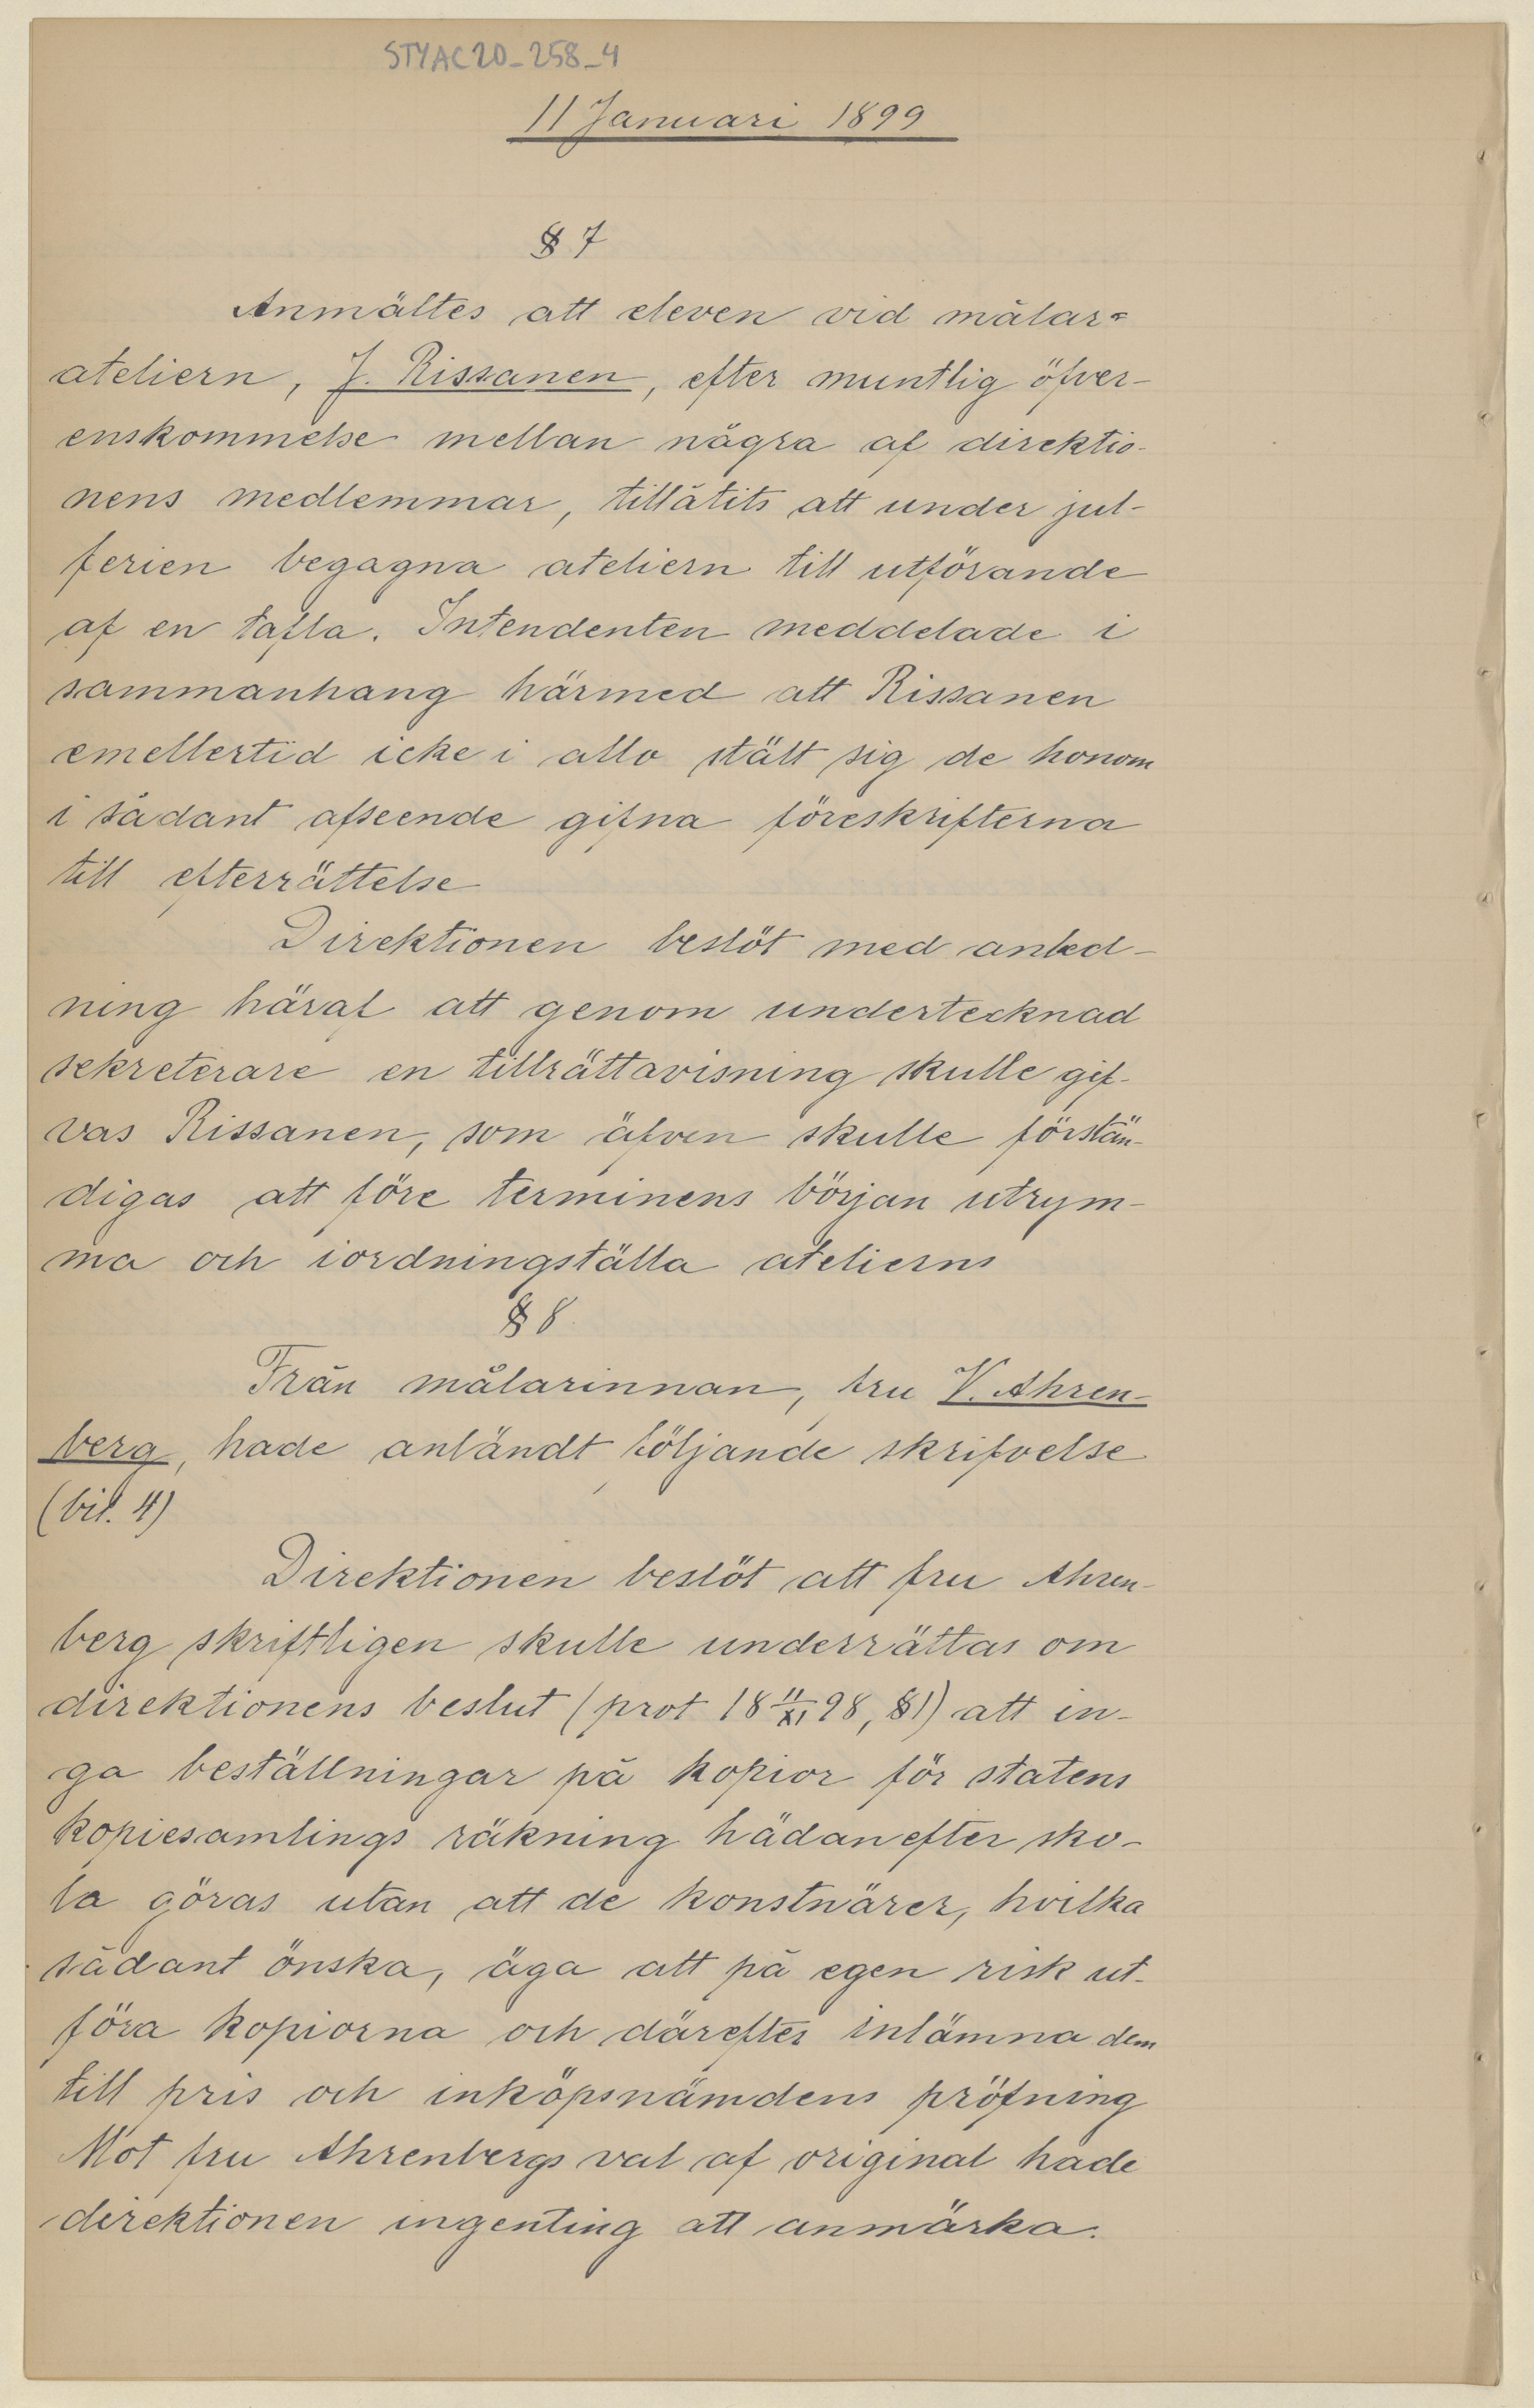 STYAC20_258_4
11 Januari 1899
§ 7
Anmältes att eleven vid målar=
ateliern, J. Rissanen, efter muntlig öfver-
enskommelse mellan några af direktio-
nens medlemmar, tillåtits att under jul-
ferien begagna ateliern till utförande
af en tafla. Intendenten meddelade i
sammanhang härmed att Rissanen
emellertid icke i allo stält sig de honom
i sådant afseende gifna föreskrifterna
till efterrättelse
Direktionen beslöt med anled-
ning häraf att genom undertecknad
sekreterare en tillrättavisning skulle gif-
vas Rissanen, som äfven skulle förstän-
digas att före terminens början utrym-
ma och iordningställa atelierns
§ 8
Från målarinnan, fru V. Ahren-
berg, hade anländt följande skrifvelse
(bil. 4)
Direktionen beslöt att fru Ahren-
berg skriftligen skulle underrättas om
direktionens beslut (prot 18 11/XI 98, §1) att in-
ga beställningar på kopior för statens
kopiesamlings räkning hädanefter sko-
la göras utan att de konstnärer, hvilka
sådant önska, äga att på egen risk ut-
föra kopiorna och därefter inlämna dem
till pris och inköpsnämdens pröfning
Mot fru Ahrenbergs val af original hade
direktionen ingenting att anmärka.